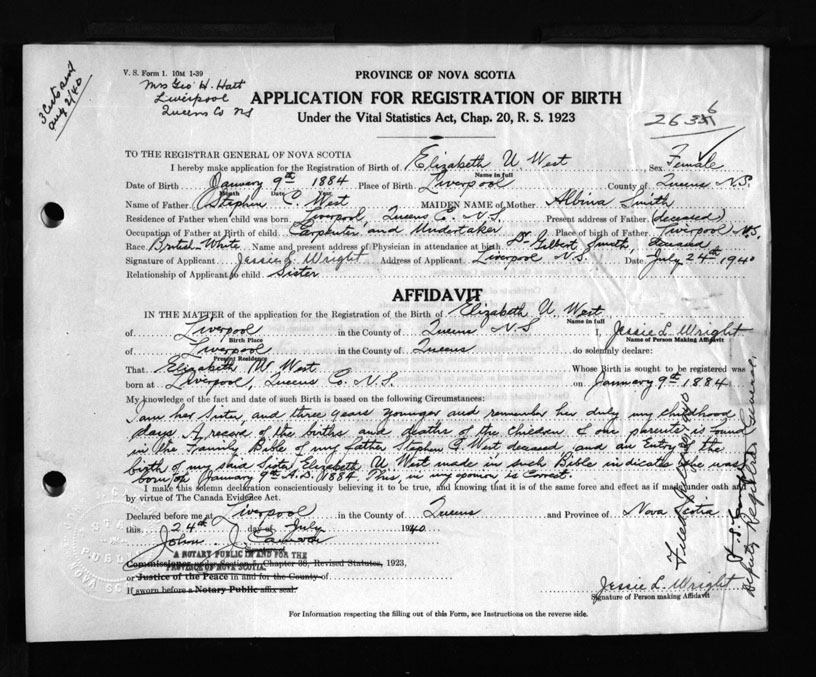 V. S. Form 1. 10M 1-39
Mrs Geo H. Hatt
Liverpool
Queens Co NS
Aug 2/40
PROVINCE OF NOVA SCOTIA
APPLICATION FOR REGISTRATION OF BIRTH
Under the Vital Statistics Act, Chap. 20, R. S. 1923
TO THE REGISTRAR GENERAL OF NOVA SCOTIA
I hereby make application for the Registration of Birth of Elizabeth U. West Sex Female
Name in full
Date of Birth January 9th 1884 Place of Birth Liverpool County of Queens N.S.
Month Day Year
Name of Father Stephen C. West MAIDEN NAME of Mother Albina Smith
Residence of Father when child was born Liverpool, Queens Co. N.S. Present address of Father (deceased)
Occupation of Father at Birth of child Carpenter and Undertaker Place of birth of Father Liverpool N.S.
Race British-White Name and present address of Physician in attendance at birth Dr Gilbert Smith, deceased
Signature of Applicant Jessie L. Wright Address of Applicant Liverpool N.S. Date July 24th 1940
Relationship of Applicant to child Sister
AFFIDAVIT
IN THE MATTER of the application for the Registration of the Birth of Elizabeth U. West
Name in full
of Liverpool in the County of Queens N.S. I, Jessie L. Wright
Birth Place Name of Person Making Affidavit
of Liverpool in the County of Queens do solemnly declare:
Present Residence
That Elizabeth U. West Whose Birth is sought to be registered was
born at Liverpool, Queens Co. N.S. on January 9th 1884
My knowledge of the fact and date of such Birth is based on the following Circumstances:
I am her Sister, and three years younger and remember her duly my childhood
days. A record of the births and deaths of the children of our parents is found
in the Family Bible of my father Stephen C. West deceased, and an Entry of the
birth of my said Sister, Elizabeth U. West made in such Bible indicates she was
born on January 9th A.D. 1884. This, in my opinion is Correct.
I make this solemn declaration conscientiously believing it to be true, and knowing that it is of the same force and effect as if made under oath and
by virtue of The Canada Evidence Act.
Declared before me at Liverpool in the County of Queens and Province of Nova Scotia
this 24th day of July 1940
John
A NOTARY PUBLIC IN AND FOR THE
PROVINCE OF NOVA SCOTIA
Commissioner under Section 5, Chapter 38, Revised Statutes, 1923,
or Justice of the Peace in and for the County of
If sworn before a Notary Public affix seal.
Jessie L. Wright
Signature of Person making Affidavit
Deputy Registrar General
For Information respecting the filling out of this Form, see Instructions on the reverse side.